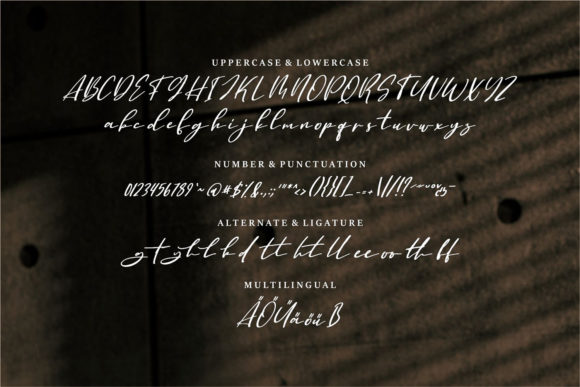 UPPERCASE & LOWERCASE
ABCDEFGHIJKLMNOPQRSTUVWXYZ
abcdefghijklmnopqrstuvwxyz
NUMBER & PUNCTUATION
0123456789
ALTERNATE & LIGATURE
tt ht ll ee oo th ff
MULTILINGUAL
ÄÖÜäöü